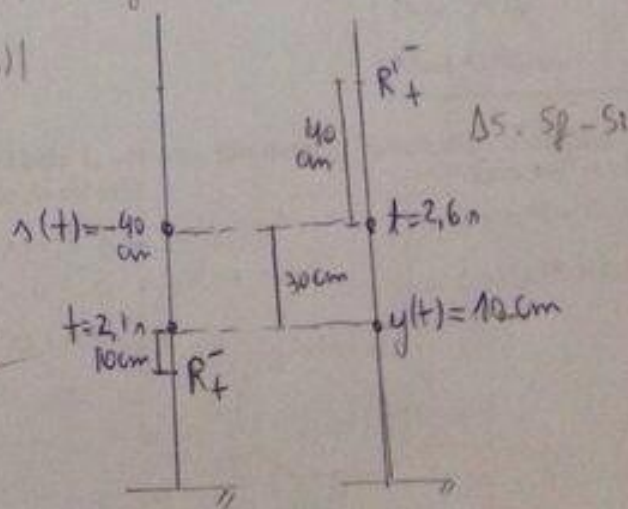 R'₊⁻
40
cm
Δs = Sf - Si
s(t)=-40
cm
t=2,6s
30cm
t=2,1s
y(t)=10cm
10cm
R₊⁻